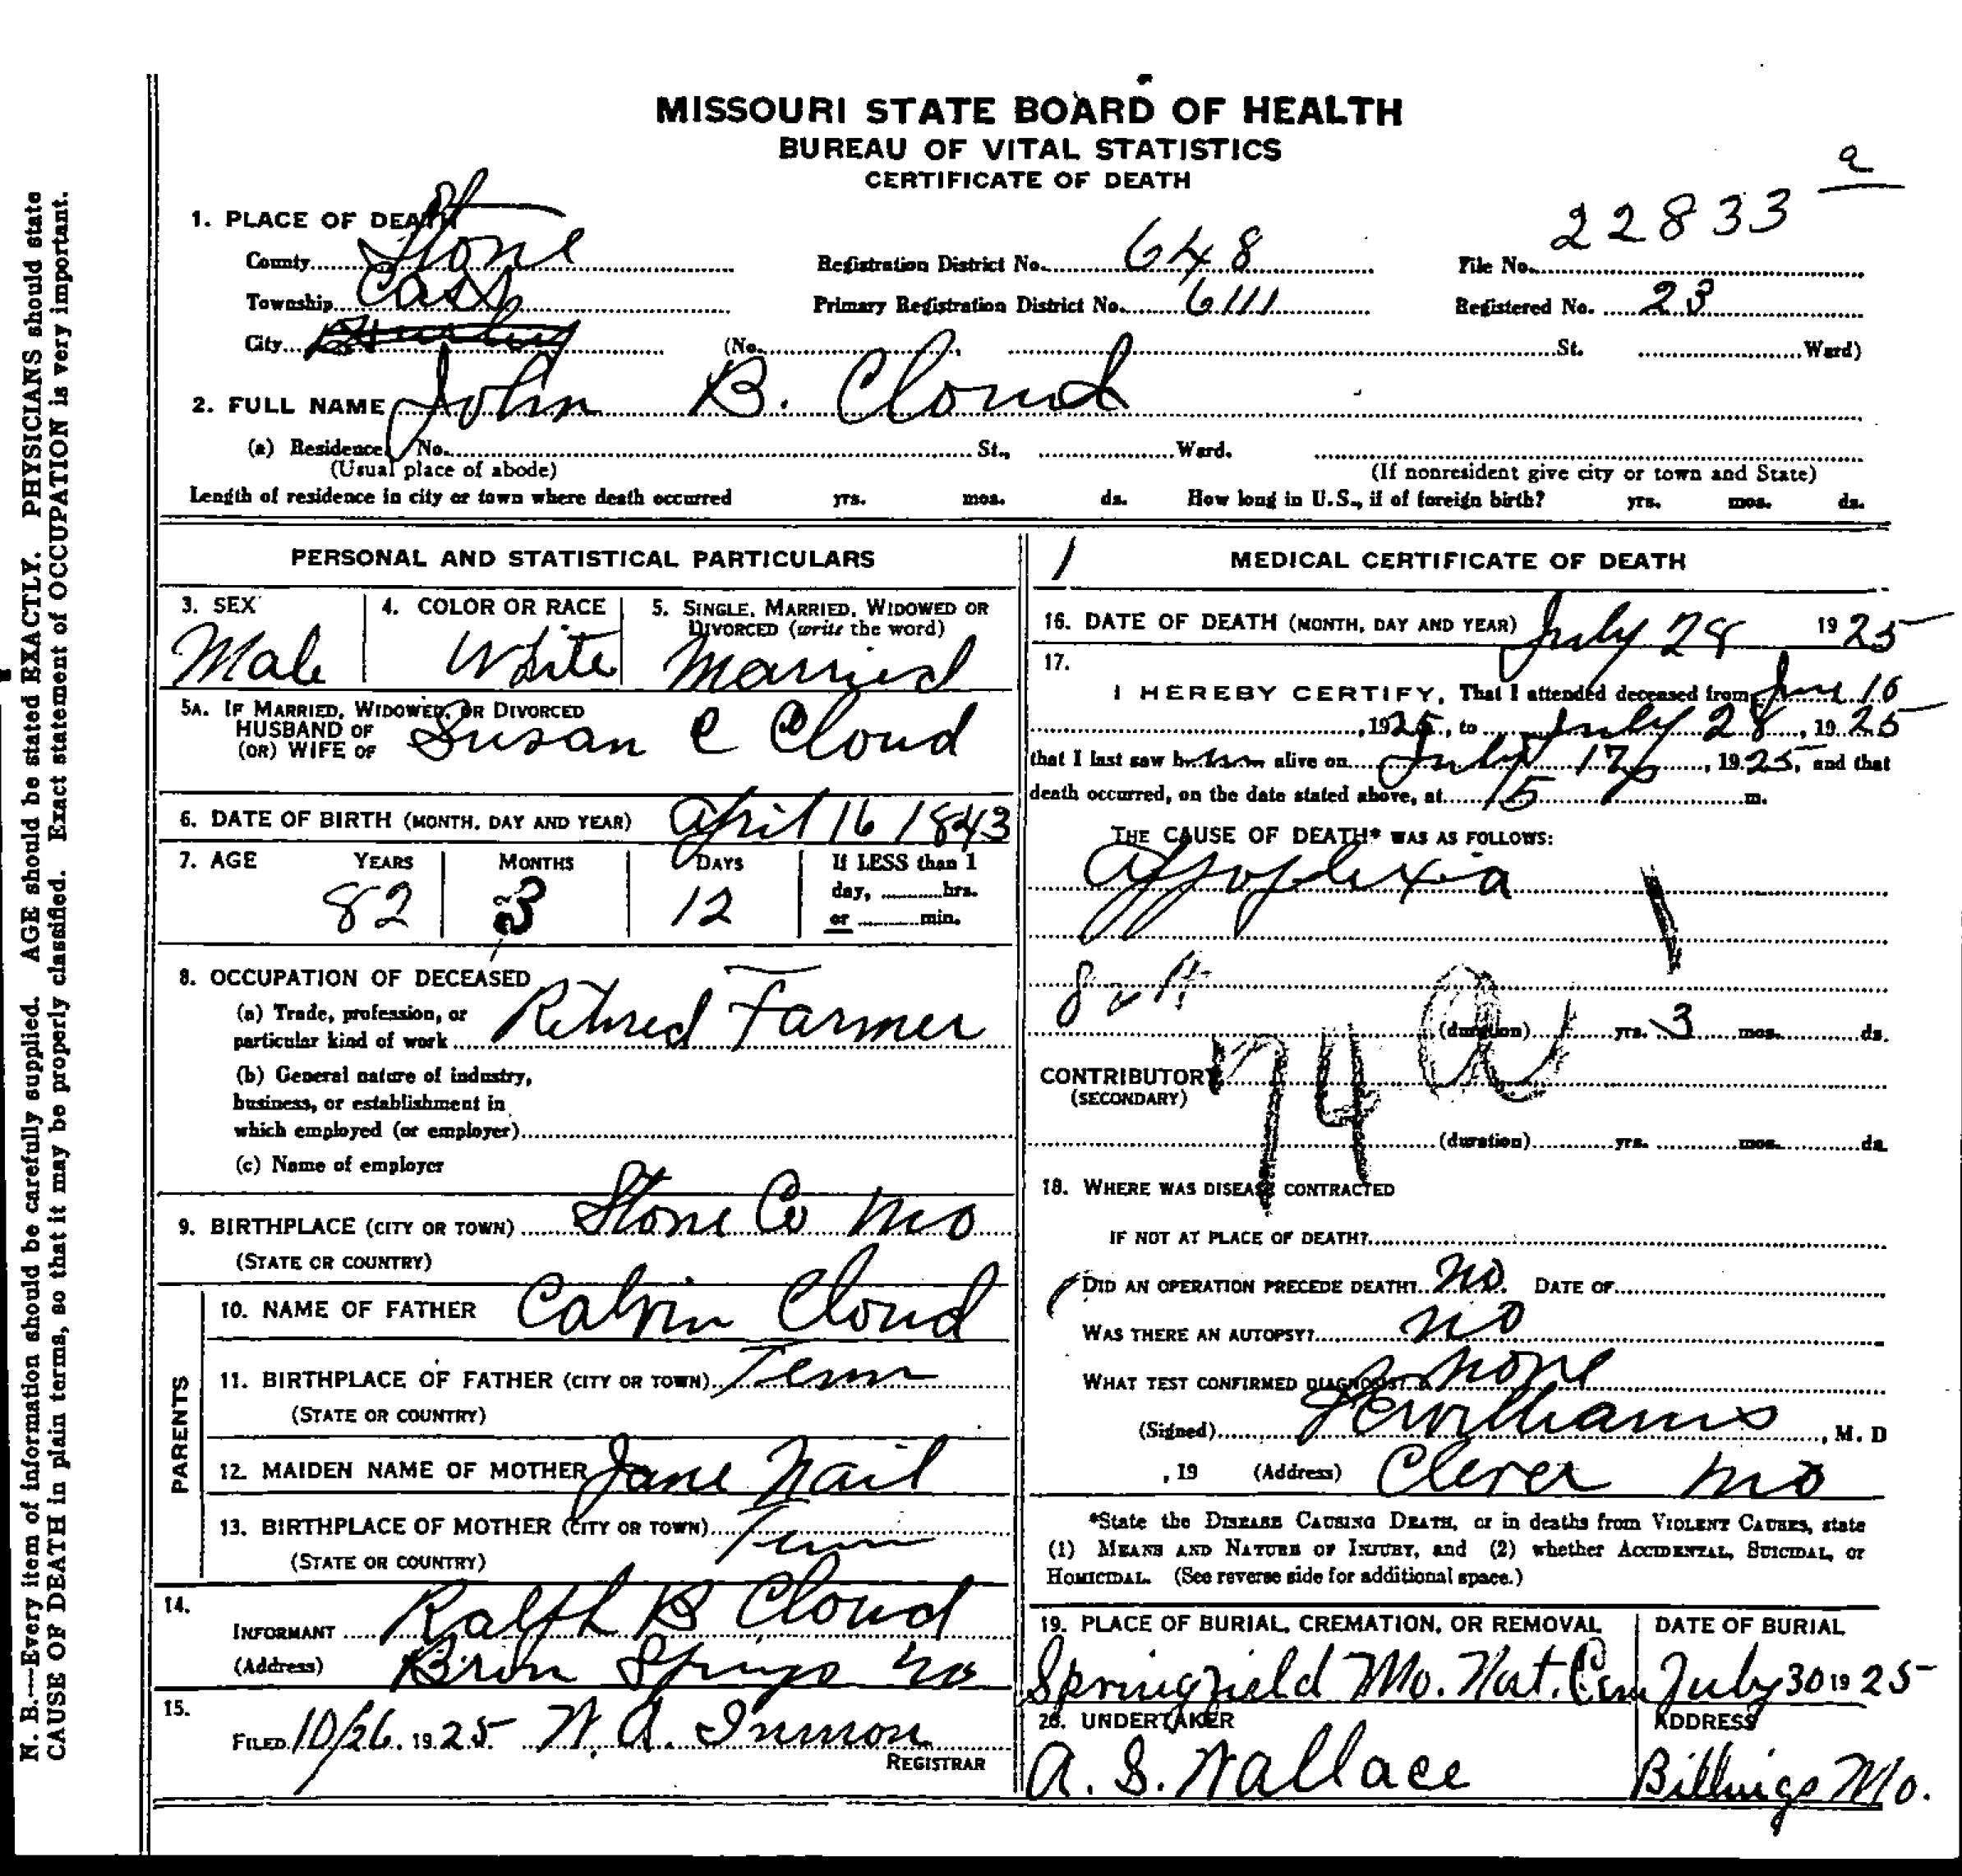 MISSOURI STATE BOARD OF HEALTH
BUREAU OF VITAL STATISTICS
CERTIFICATE OF DEATH
a
22833
1. PLACE OF DEATH
County Stone Registration District No. 648 File No.
Township Cass Primary Registration District No. 6111 Registered No. 23
City (No. St. Ward)
2. FULL NAME John B. Cloud
(a) Residence No. St., Ward.
(Usual place of abode) (If nonresident give city or town and State)
Length of residence in city or town where death occurred yrs. mos. ds. How long in U.S., if of foreign birth? yrs. mos. ds.
PERSONAL AND STATISTICAL PARTICULARS
3. SEX 4. COLOR OR RACE 5. SINGLE, MARRIED, WIDOWED OR
DIVORCED (write the word)
Male White Married
5A. IF MARRIED, WIDOWED, OR DIVORCED
HUSBAND OF
(OR) WIFE OF Susan C Cloud
6. DATE OF BIRTH (MONTH, DAY AND YEAR) April 16 1843
7. AGE YEARS MONTHS DAYS If LESS than 1
day, hrs.
or min.
82 3 12
8. OCCUPATION OF DECEASED
(a) Trade, profession, or
particular kind of work Retired Farmer
(b) General nature of industry,
business, or establishment in
which employed (or employer)
(c) Name of employer
9. BIRTHPLACE (CITY OR TOWN) Stone Co Mo
(STATE OR COUNTRY)
PARENTS
10. NAME OF FATHER Calvin Cloud
11. BIRTHPLACE OF FATHER (CITY OR TOWN) Tenn
(STATE OR COUNTRY)
12. MAIDEN NAME OF MOTHER Jane Nail
13. BIRTHPLACE OF MOTHER (CITY OR TOWN) Tenn
(STATE OR COUNTRY)
14.
INFORMANT Ralph B Cloud
(Address) Springs Mo
15.
FILED 10/26, 1925 W. A. Inmon
REGISTRAR
1 MEDICAL CERTIFICATE OF DEATH
16. DATE OF DEATH (MONTH, DAY AND YEAR) July 28 1925
17.
I HEREBY CERTIFY, That I attended deceased from June 16
, 1925, to July 28, 1925
that I last saw him alive on July 17, 1925, and that
death occurred, on the date stated above, at m.
THE CAUSE OF DEATH* WAS AS FOLLOWS:
Appoplexia
(duration) 1 yrs. 3 mos. ds.
74 a
CONTRIBUTORY
(SECONDARY)
(duration) yrs. mos. ds.
18. WHERE WAS DISEASE CONTRACTED
IF NOT AT PLACE OF DEATH?
DID AN OPERATION PRECEDE DEATH? No. DATE OF
WAS THERE AN AUTOPSY? no
WHAT TEST CONFIRMED DIAGNOSIS? none
(Signed) Williams, M. D
, 19 (Address) Clever Mo
*State the DISEASE CAUSING DEATH, or in deaths from VIOLENT CAUSES, state
(1) MEANS AND NATURE OF INJURY, and (2) whether ACCIDENTAL, SUICIDAL, or
HOMICIDAL. (See reverse side for additional space.)
19. PLACE OF BURIAL, CREMATION, OR REMOVAL DATE OF BURIAL
Springfield Mo. Nat. Cem July 30 1925
20. UNDERTAKER ADDRESS
A. S. Wallace Billings Mo.
N. B.—Every item of information should be carefully supplied. AGE should be stated EXACTLY. PHYSICIANS should state
CAUSE OF DEATH in plain terms, so that it may be properly classified. Exact statement of OCCUPATION is very important.